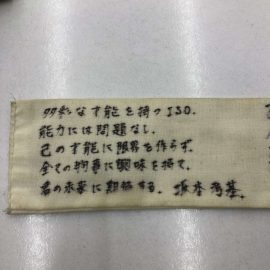 多彩なす能を持つISO.
能力には問題なし.
己のす能に限界を作らず.
全ての物事に興味を持て.
君の未来に期待する. 坂本